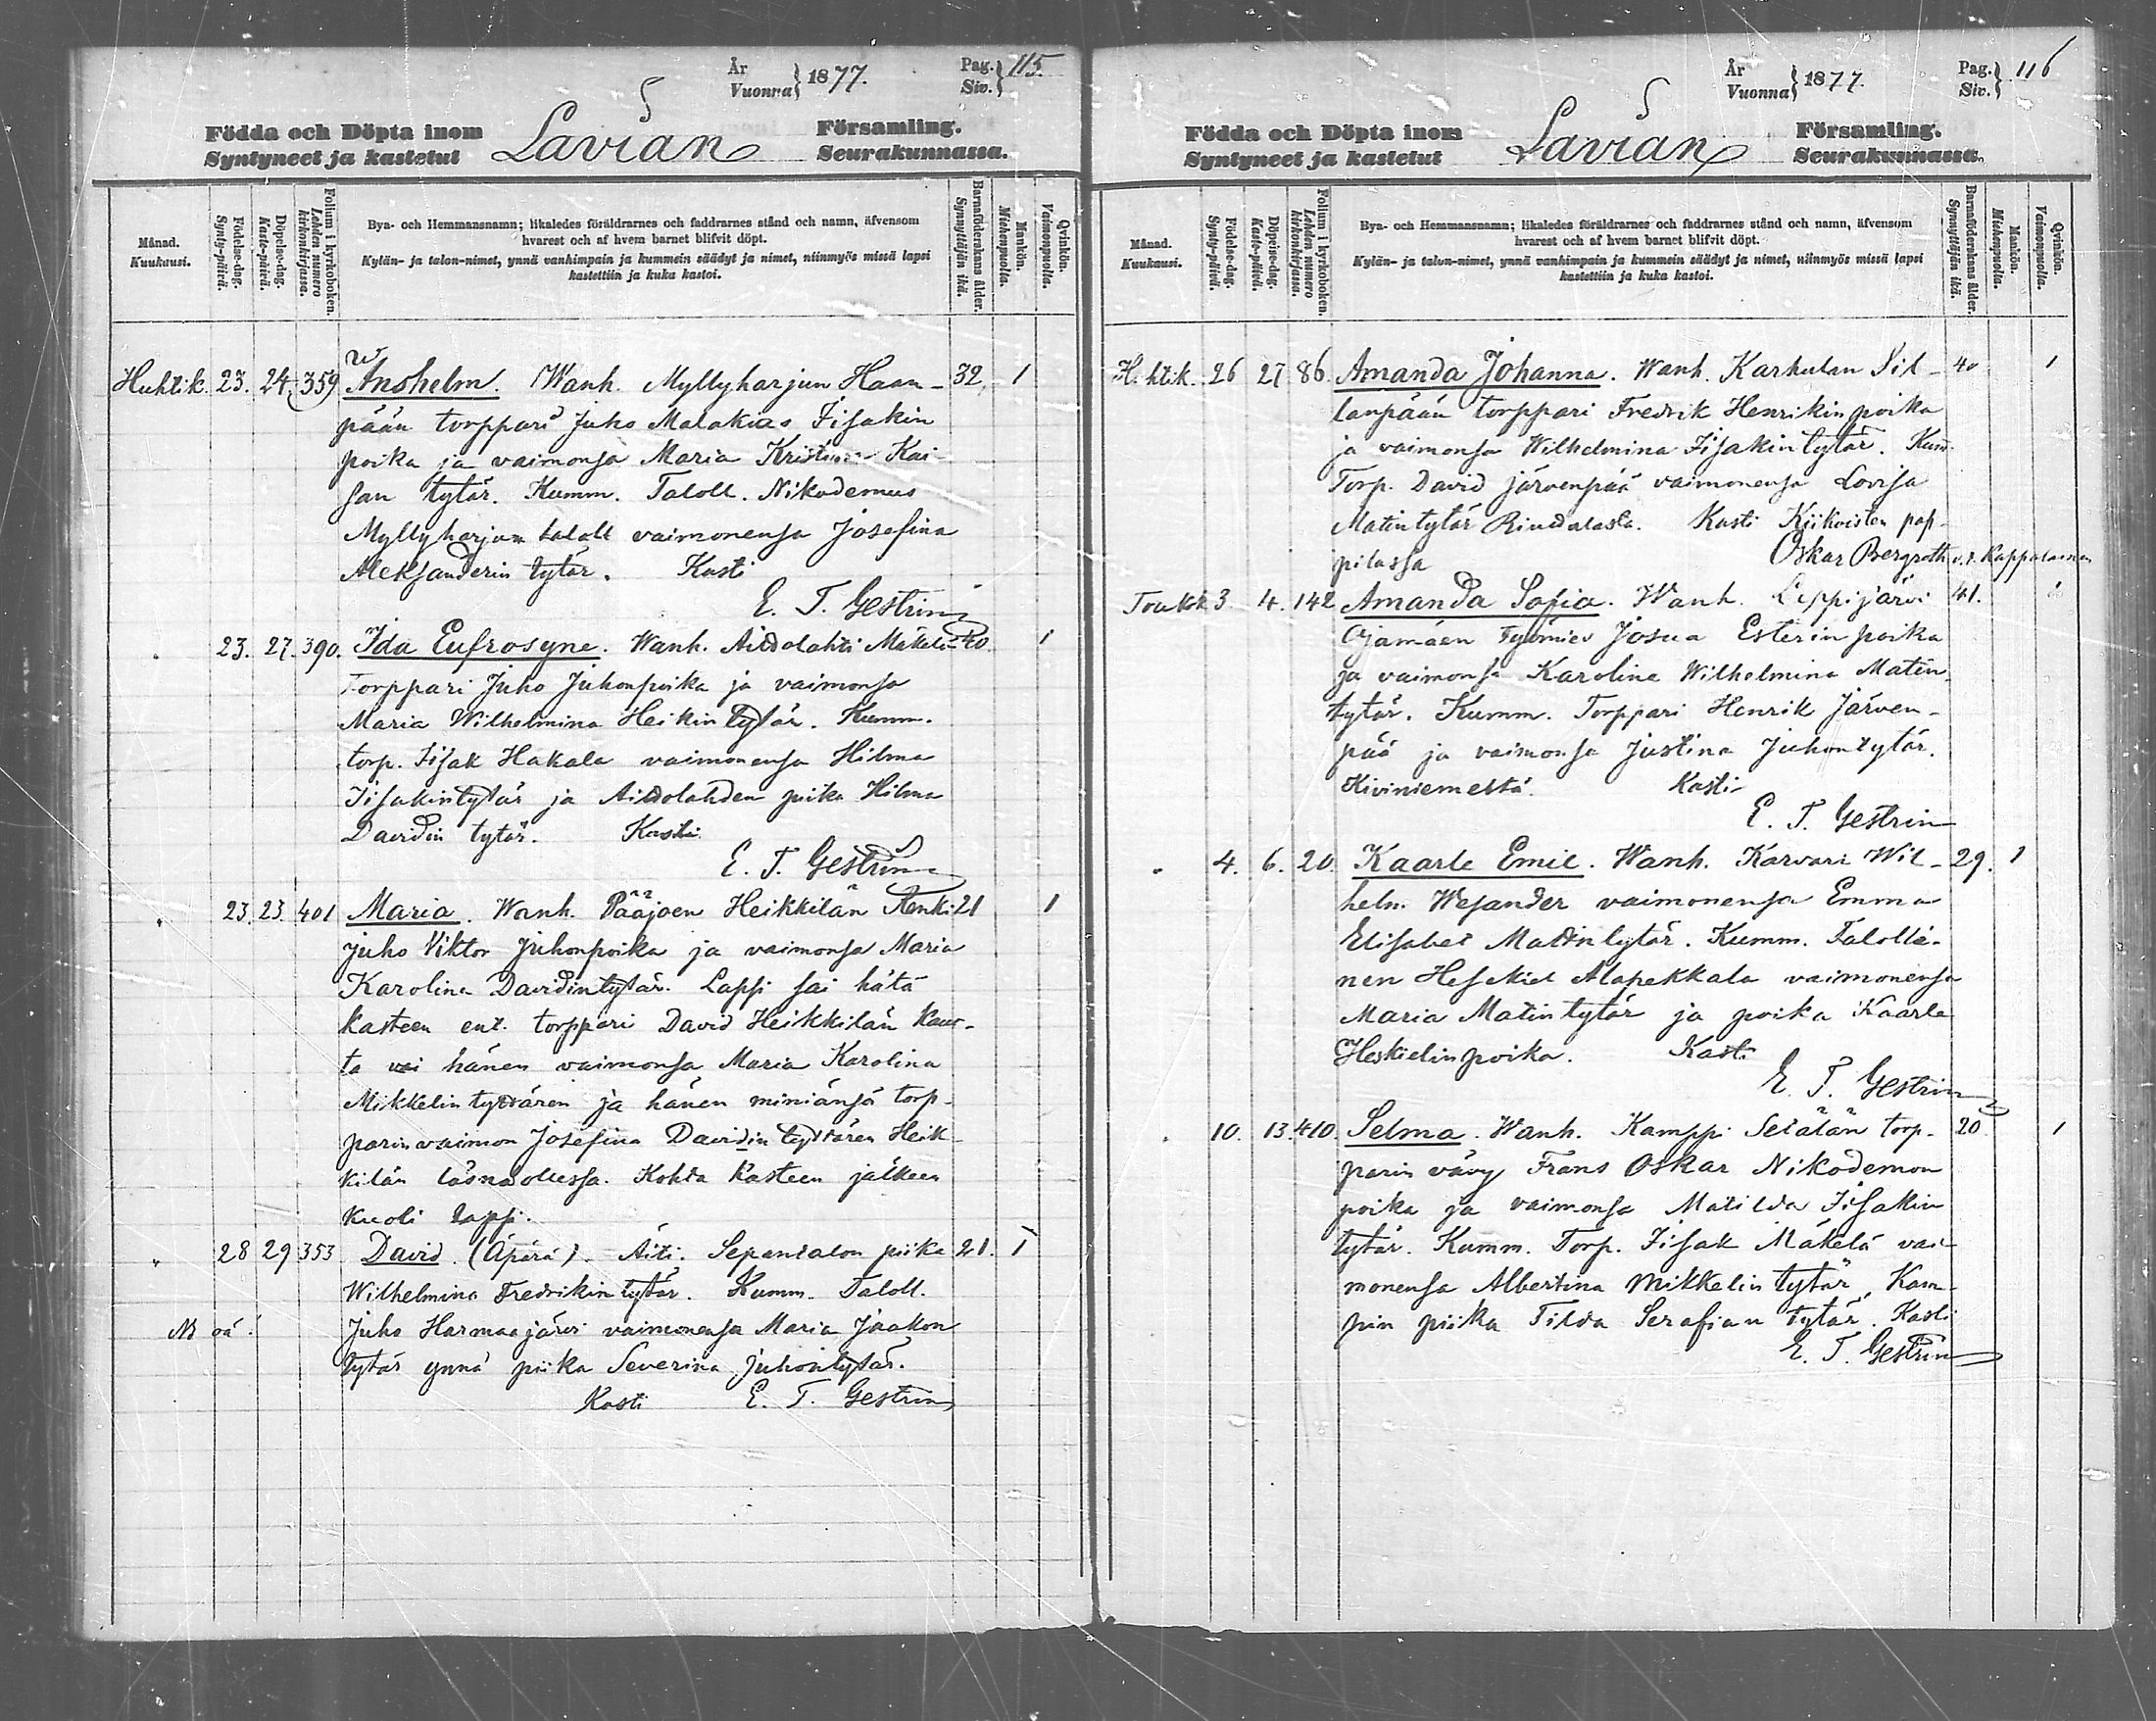 År
Vuonna } 1877.
Pag.
Siv. } 115.
Födda och Döpta inom
Syntyneet ja kastetut
Lavian
Församling.
Seurakunnassa.
Månad.
Kuukausi.
Födelse-dag.
Synty-päivä.
Döpelse-dag.
Kaste-päivä.
Folium i kyrkoboken.
Lehden numero kirkonkirjassa.
Bya- och Hemmansnamn; likaledes föräldrarnes och faddrarnes stånd och namn, äfvensom
hvarest och af hvem barnet blifvit döpt.
Kylän- ja talon-nimet, ynnä vanhimpain ja kummein säädyt ja nimet, niinmyös missä lapsi
kastettiin ja kuka kastoi.
Barnaföderskans ålder.
Synnyttäjän ikä.
Mankön.
Miehenpuolia.
Qvinkön.
Vaimonpuolia.
Huhtik. 23. 24. 359 Anshelm. Wanh. Myllyharjun Haan- 32. 1
pään torppari Juho Malakias Iisakin
poika ja vaimonsa Maria Kristiina Kai-
san tytär. Kumm. Taloll. Nikodemus
Myllyharjun taloll vaimonensa Josefina
Aleksanderin tytär. Kasti
E. T. Gestrin
" 23. 27. 390. Ida Eufrosyne. Wanh. Aittolahti Mäkelä 40. 1
Torppari Juho Juhonpoika ja vaimonsa
Maria Wilhelmina Heikin tytär. Kumm.
torp. Iisak Hakala vaimonensa Hilma
Iisakintytär ja Aittolahden piika Hilma
Davidin tytär. Kasti
E. T. Gestrin
" 23. 23. 401 Maria. Wanh. Pääjoen Heikkilän Renki 21 1
Juho Viktor Juhonpoika ja vaimonsa Maria
Karolina Davidintytär. Lapsi sai hätä
kasteen ent. torppari David Heikkilän kaut-
ta vai hänen vaimonsa Maria Karolina
Mikkelin tyttären ja hänen miniänsä torp-
parin vaimon Josefina Davidin tyttären Heik-
kilän läsnäollessa. Kohta kasteen jälkeen
kuoli lapsi.
" 28 29 353 David. (Äpärä). Äiti. Sepäntalon piika 21. 1
Wilhelmina Fredrikin tytär. Kumm. Taloll.
NB oä! Juho Harmaajärvi vaimonensa Maria Jaakon
tytär ynnä piika Severina Juhontytär.
Kasti E. T. Gestrin
År
Vuonna } 1877.
Pag.
Siv. } 116
Födda och Döpta inom
Syntyneet ja kastetut
Lavian
Församling.
Seurakunnassa.
Månad.
Kuukausi.
Födelse-dag.
Synty-päivä.
Döpelse-dag.
Kaste-päivä.
Folium i kyrkoboken.
Lehden numero kirkonkirjassa.
Bya- och Hemmansnamn; likaledes föräldrarnes och faddrarnes stånd och namn, äfvensom
hvarest och af hvem barnet blifvit döpt.
Kylän- ja talon-nimet, ynnä vanhimpain ja kummein säädyt ja nimet, niinmyös missä lapsi
kastettiin ja kuka kastoi.
Barnaföderskans ålder.
Synnyttäjän ikä.
Mankön.
Miehenpuolia.
Qvinkön.
Vaimonpuolia.
Huhtik. 26 27 86. Amanda Johanna. Wanh. Karhulan Sil- 40 1
lanpään torppari Fredrik Henrikin poika
ja vaimonsa Wilhelmina Iisakin tytär. Kum.
Torp. David Järvenpää vaimonensa Lovisa
Matintytär Rindalasta. Kasti Kiikoisten pap-
pilassa Oskar Bergroth v.t. Kappalainen
Toukok 3. 4. 142 Amanda Sofia. Wanh. Leppijärvi 41. 1
Ojamäen työmies Josua Esterin poika
ja vaimonsa Karolina Wilhelmina Matin
tytär. Kumm. Torppari Henrik Järven-
pää ja vaimonsa Justina Juhontytär.
Kiviniemeltä. Kasti
E. T. Gestrin
" 4. 6. 20. Kaarle Emil. Wanh. Karvari Wil- 29. 1
helm Wesander vaimonensa Emma
Elisabet Matintytär. Kumm. Talolli-
nen Heskiel Alapekkala vaimonensa
Maria Matin tytär ja poika Kaarle
Heskielin poika. Kasti
E. T. Gestrin
" 10. 13. 410. Selma. Wanh. Kamppi Setälän torp- 20. 1
parin vävy Frans Oskar Nikodemon
poika ja vaimonsa Matilda Iisakin
tytär. Kumm. Torp. Iisak Mäkelä vai-
monensa Albertina Mikkelin tytär, Kam-
pin piika Tilda Serafian tytär. Kasti
E. T. Gestrin